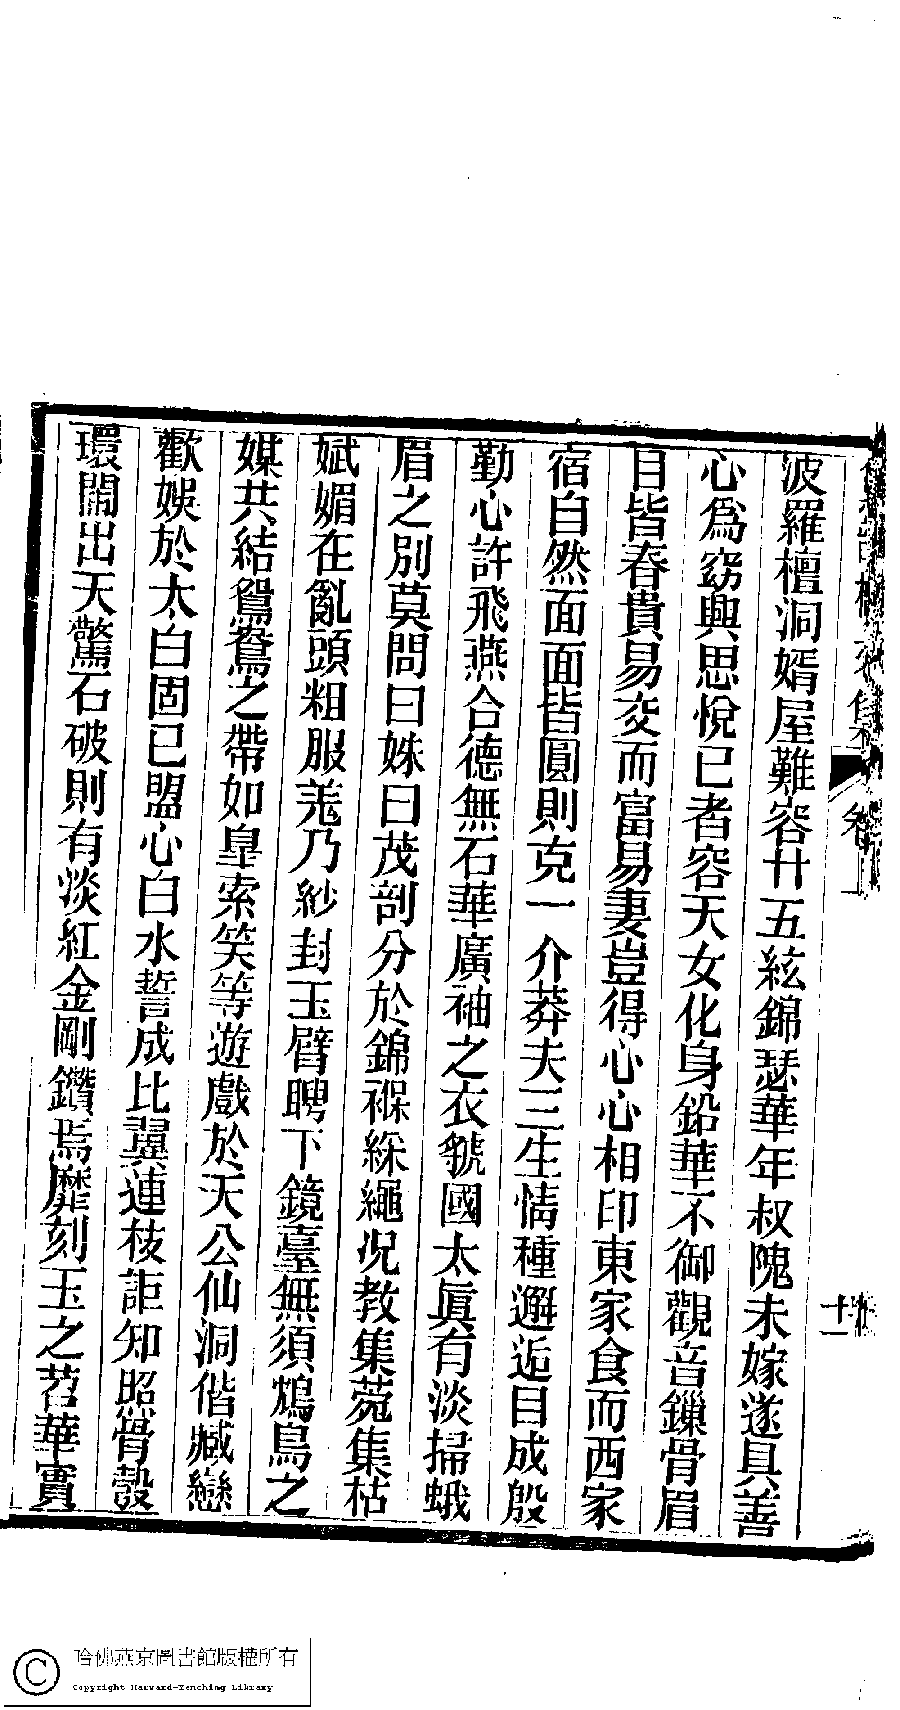 波羅檀洞婿屋難容廿五絃錦瑟華年叔隗未嫁遂具善
心為窈與思悅已者容天女化身鉛華不御觀音鏁骨眉
目皆春貴易交而富易妻豈得心心相印東家食而西家
宿自然面面皆圓則克一介莽夫三生情種邂逅目成殷
勤心許飛燕合德無石華廣袖之衣虢國太眞有淡掃蛾
眉之別莫問曰姝曰茂剖分於錦褓綵繩况教集菀集枯
斌媚在亂頭粗服羗乃紗封玉臂聘下鏡臺無須鴆鳥之
媒共結鴛鴦之帶如皐索笑等遊戲於天公仙洞偕臧戀
歡娛於太白固已盟心白水誓成比翼連枝詎知照骨瑴
環鬧出天驚石破則有淡紅金剛鑽焉靡刻玉之苕華實
卷
十一
哈佛燕京圖書館版權所有
Copyright Harvard-Yenching Library